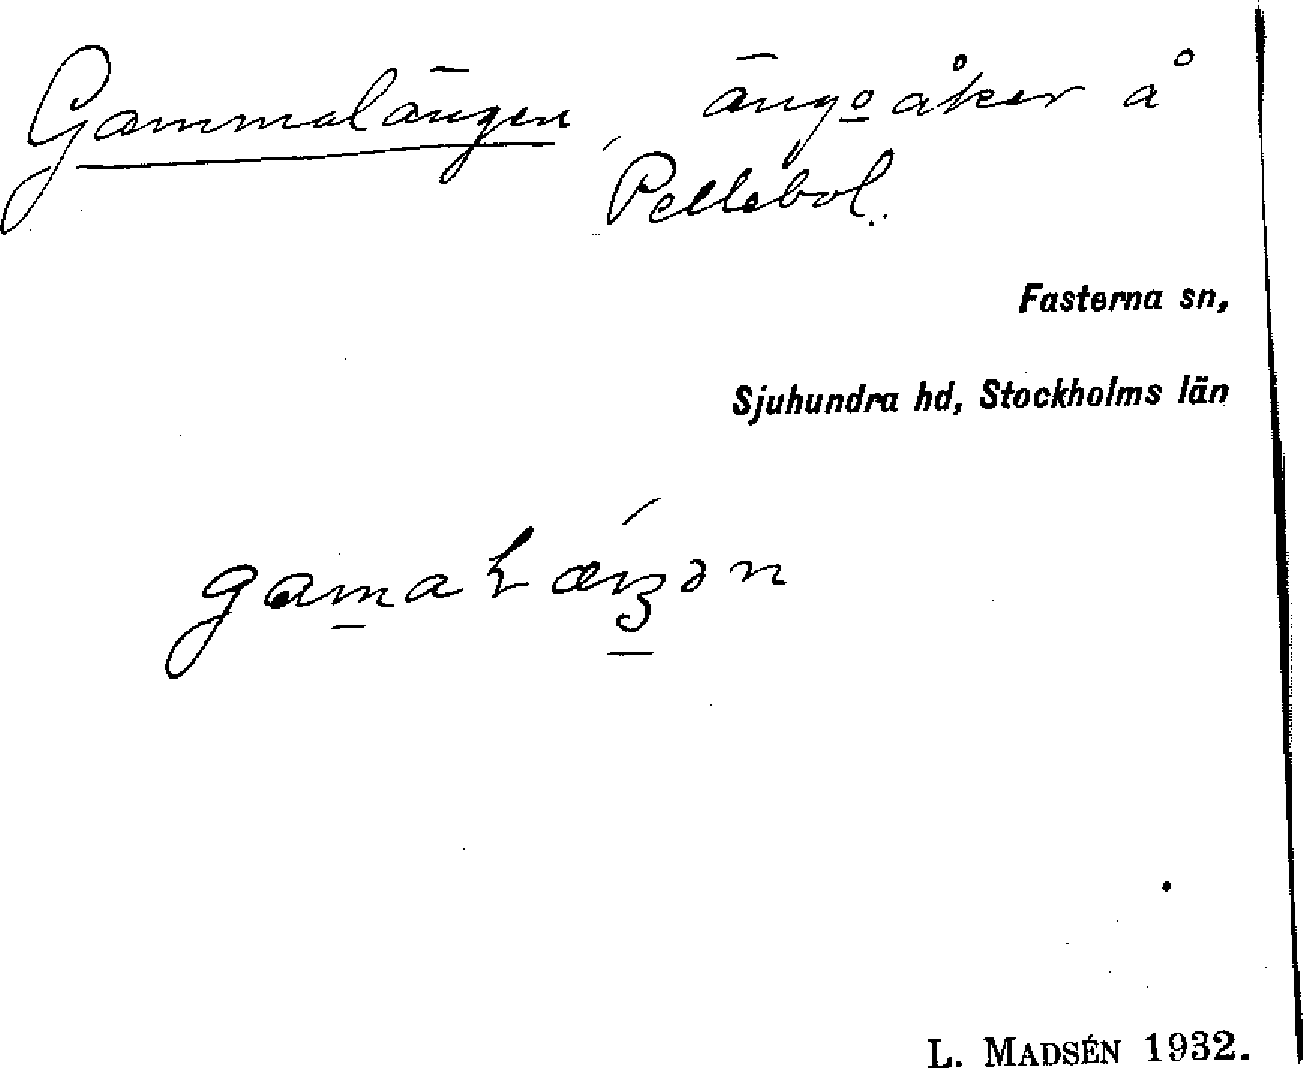 Gammalängen, äng o åker å
Pellebol.
Fasterna sn,
Sjuhundra hd, Stockholms län
L. MADSÉN 1932.